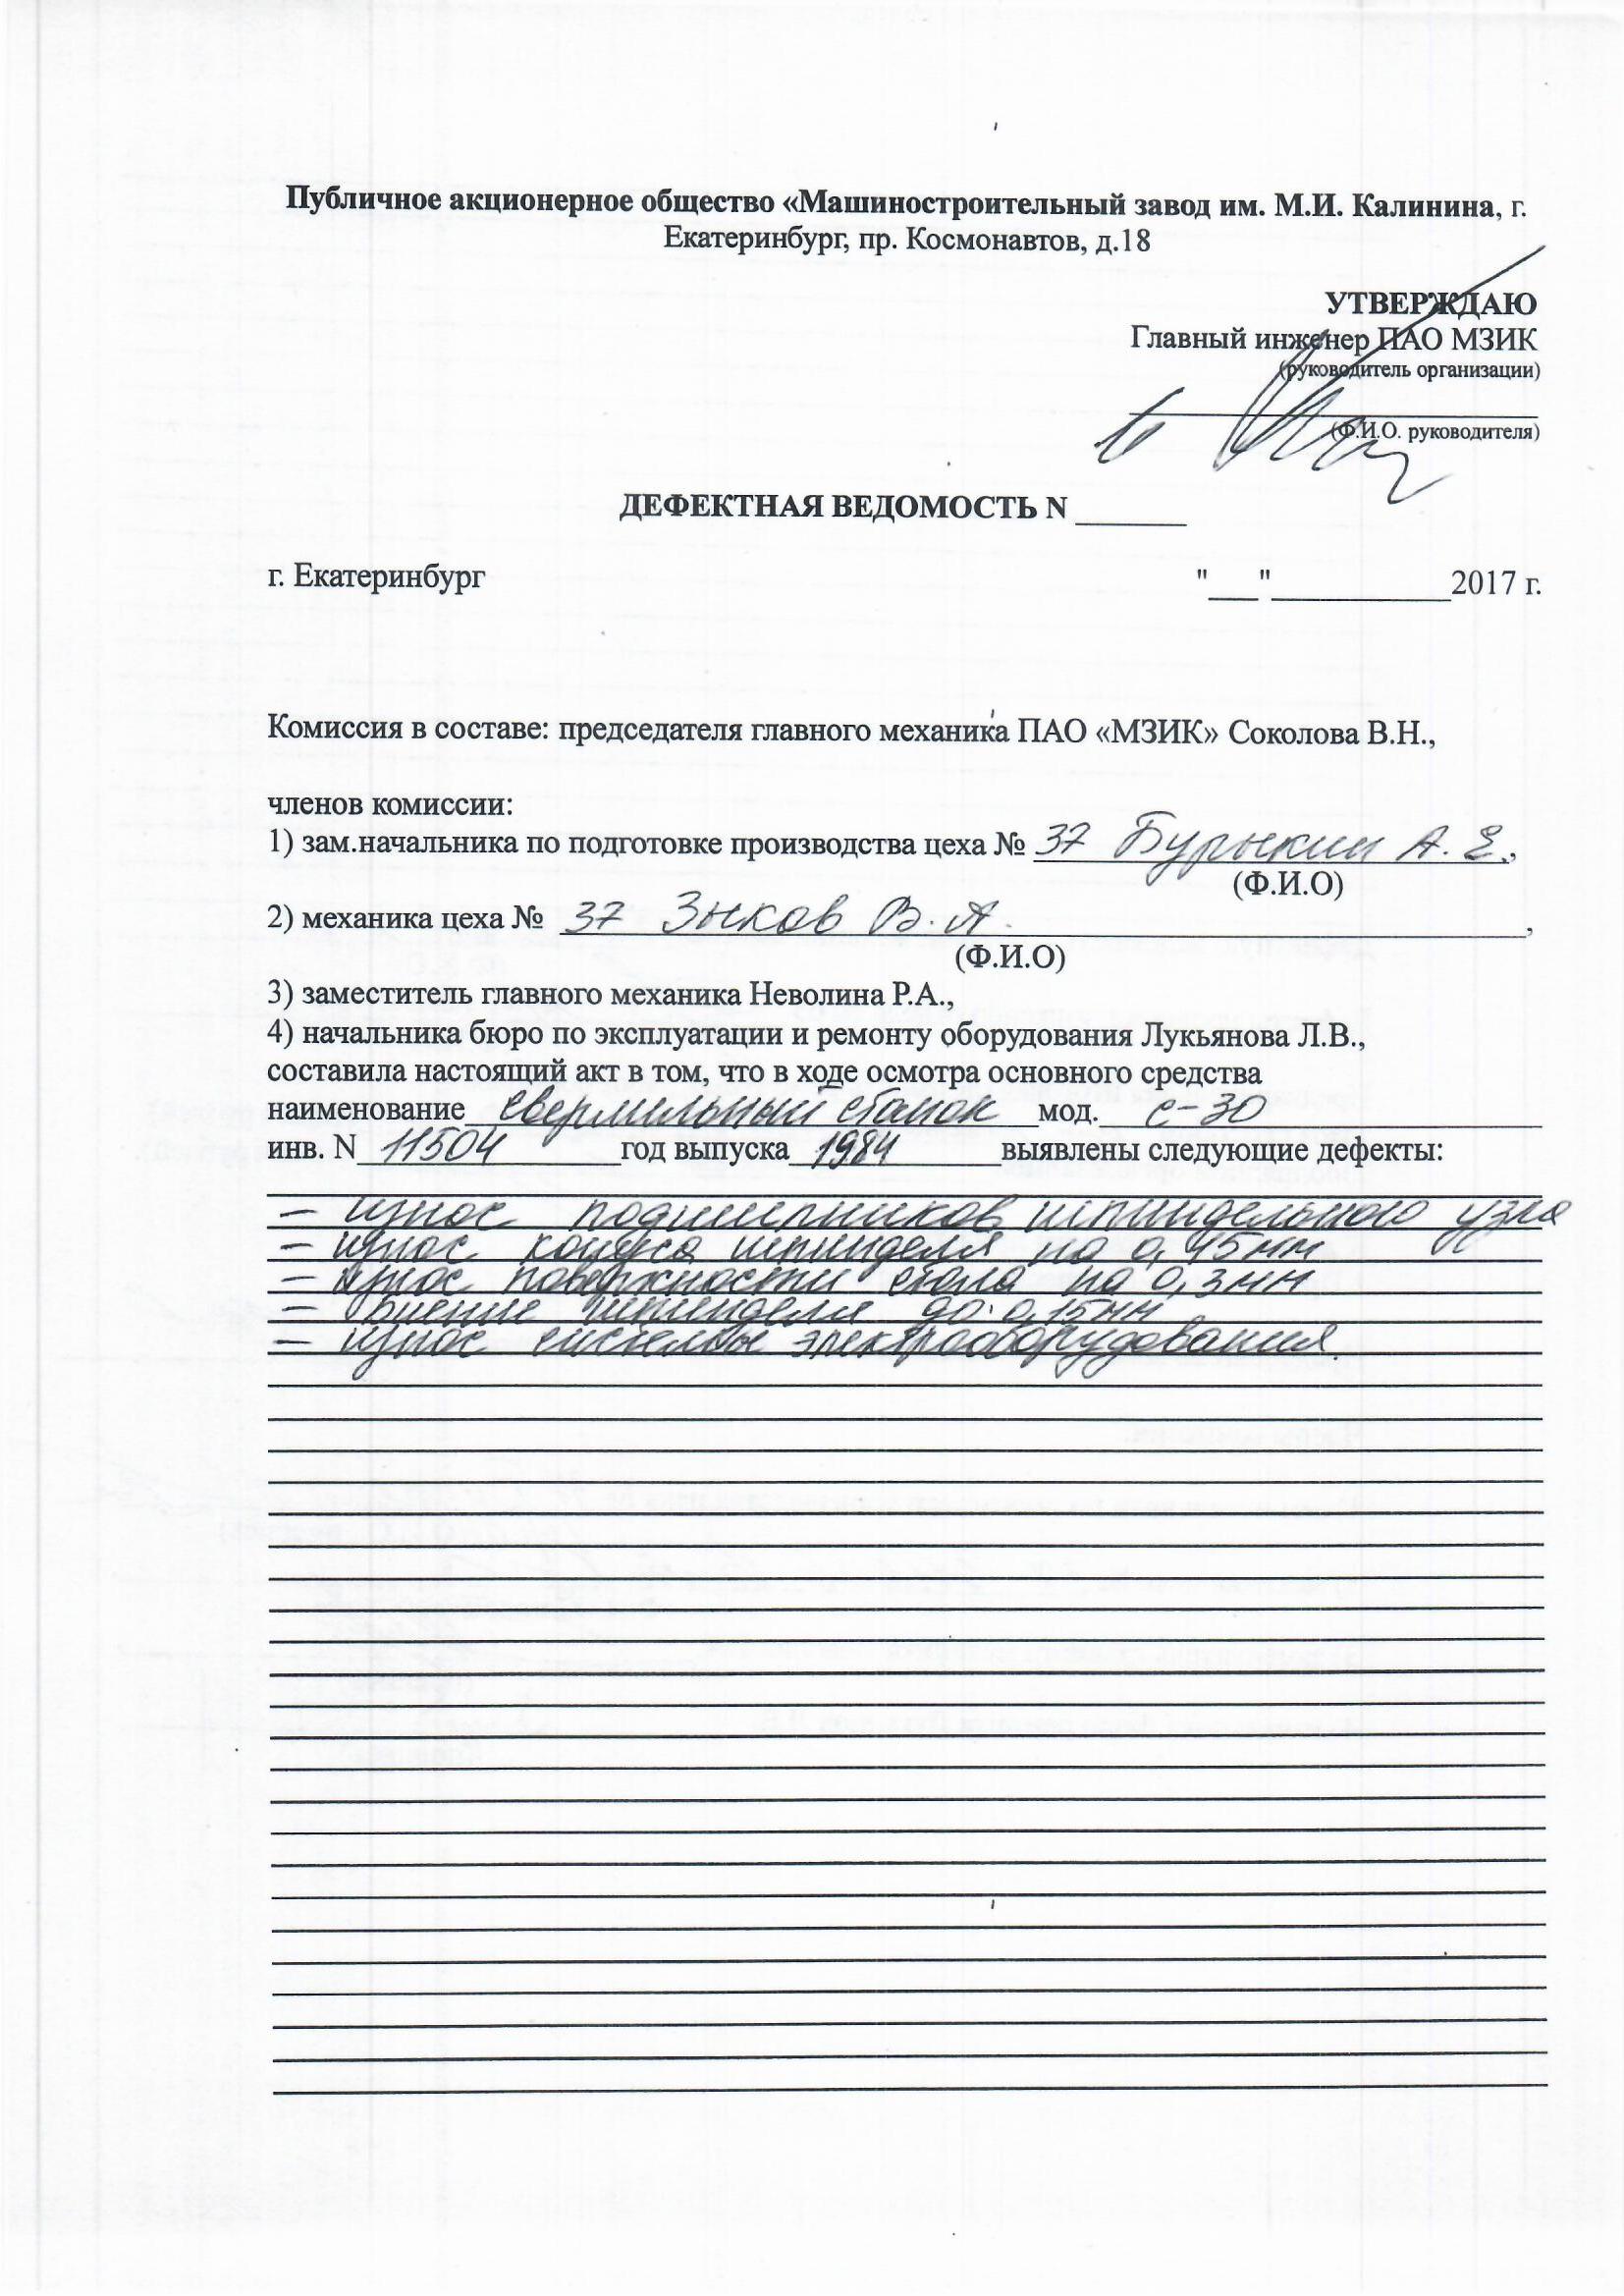 Публичное акционерное общество «Машиностроительный завод им. М.И. Калинина, г.
Екатеринбург, пр. Космонавтов, д.18
УТВЕРЖДАЮ
Главный инженер ПАО МЗИК
(руководитель организации)
(Ф.И.О. руководителя)
ДЕФЕКТНАЯ ВЕДОМОСТЬ N _______
г. Екатеринбург "___"___________2017 г.
Комиссия в составе: председателя главного механика ПАО «МЗИК» Соколова В.Н.,
членов комиссии:
1) зам.начальника по подготовке производства цеха № 37 Бурыкин А. Е.,
(Ф.И.О)
2) механика цеха № 37 Зыков В. А. ,
(Ф.И.О)
3) заместитель главного механика Неволина Р.А.,
4) начальника бюро по эксплуатации и ремонту оборудования Лукьянова Л.В.,
составила настоящий акт в том, что в ходе осмотра основного средства
наименование сверлильный станок мод. с-30
инв. N 11504 год выпуска 1984 выявлены следующие дефекты:
– износ подшипников шпиндельного узла
– износ конуса шпинделя на 0,45мм
– износ поверхности стола на 0,3мм
– биение шпинделя до 0,15мм
– износ системы электрооборудования.